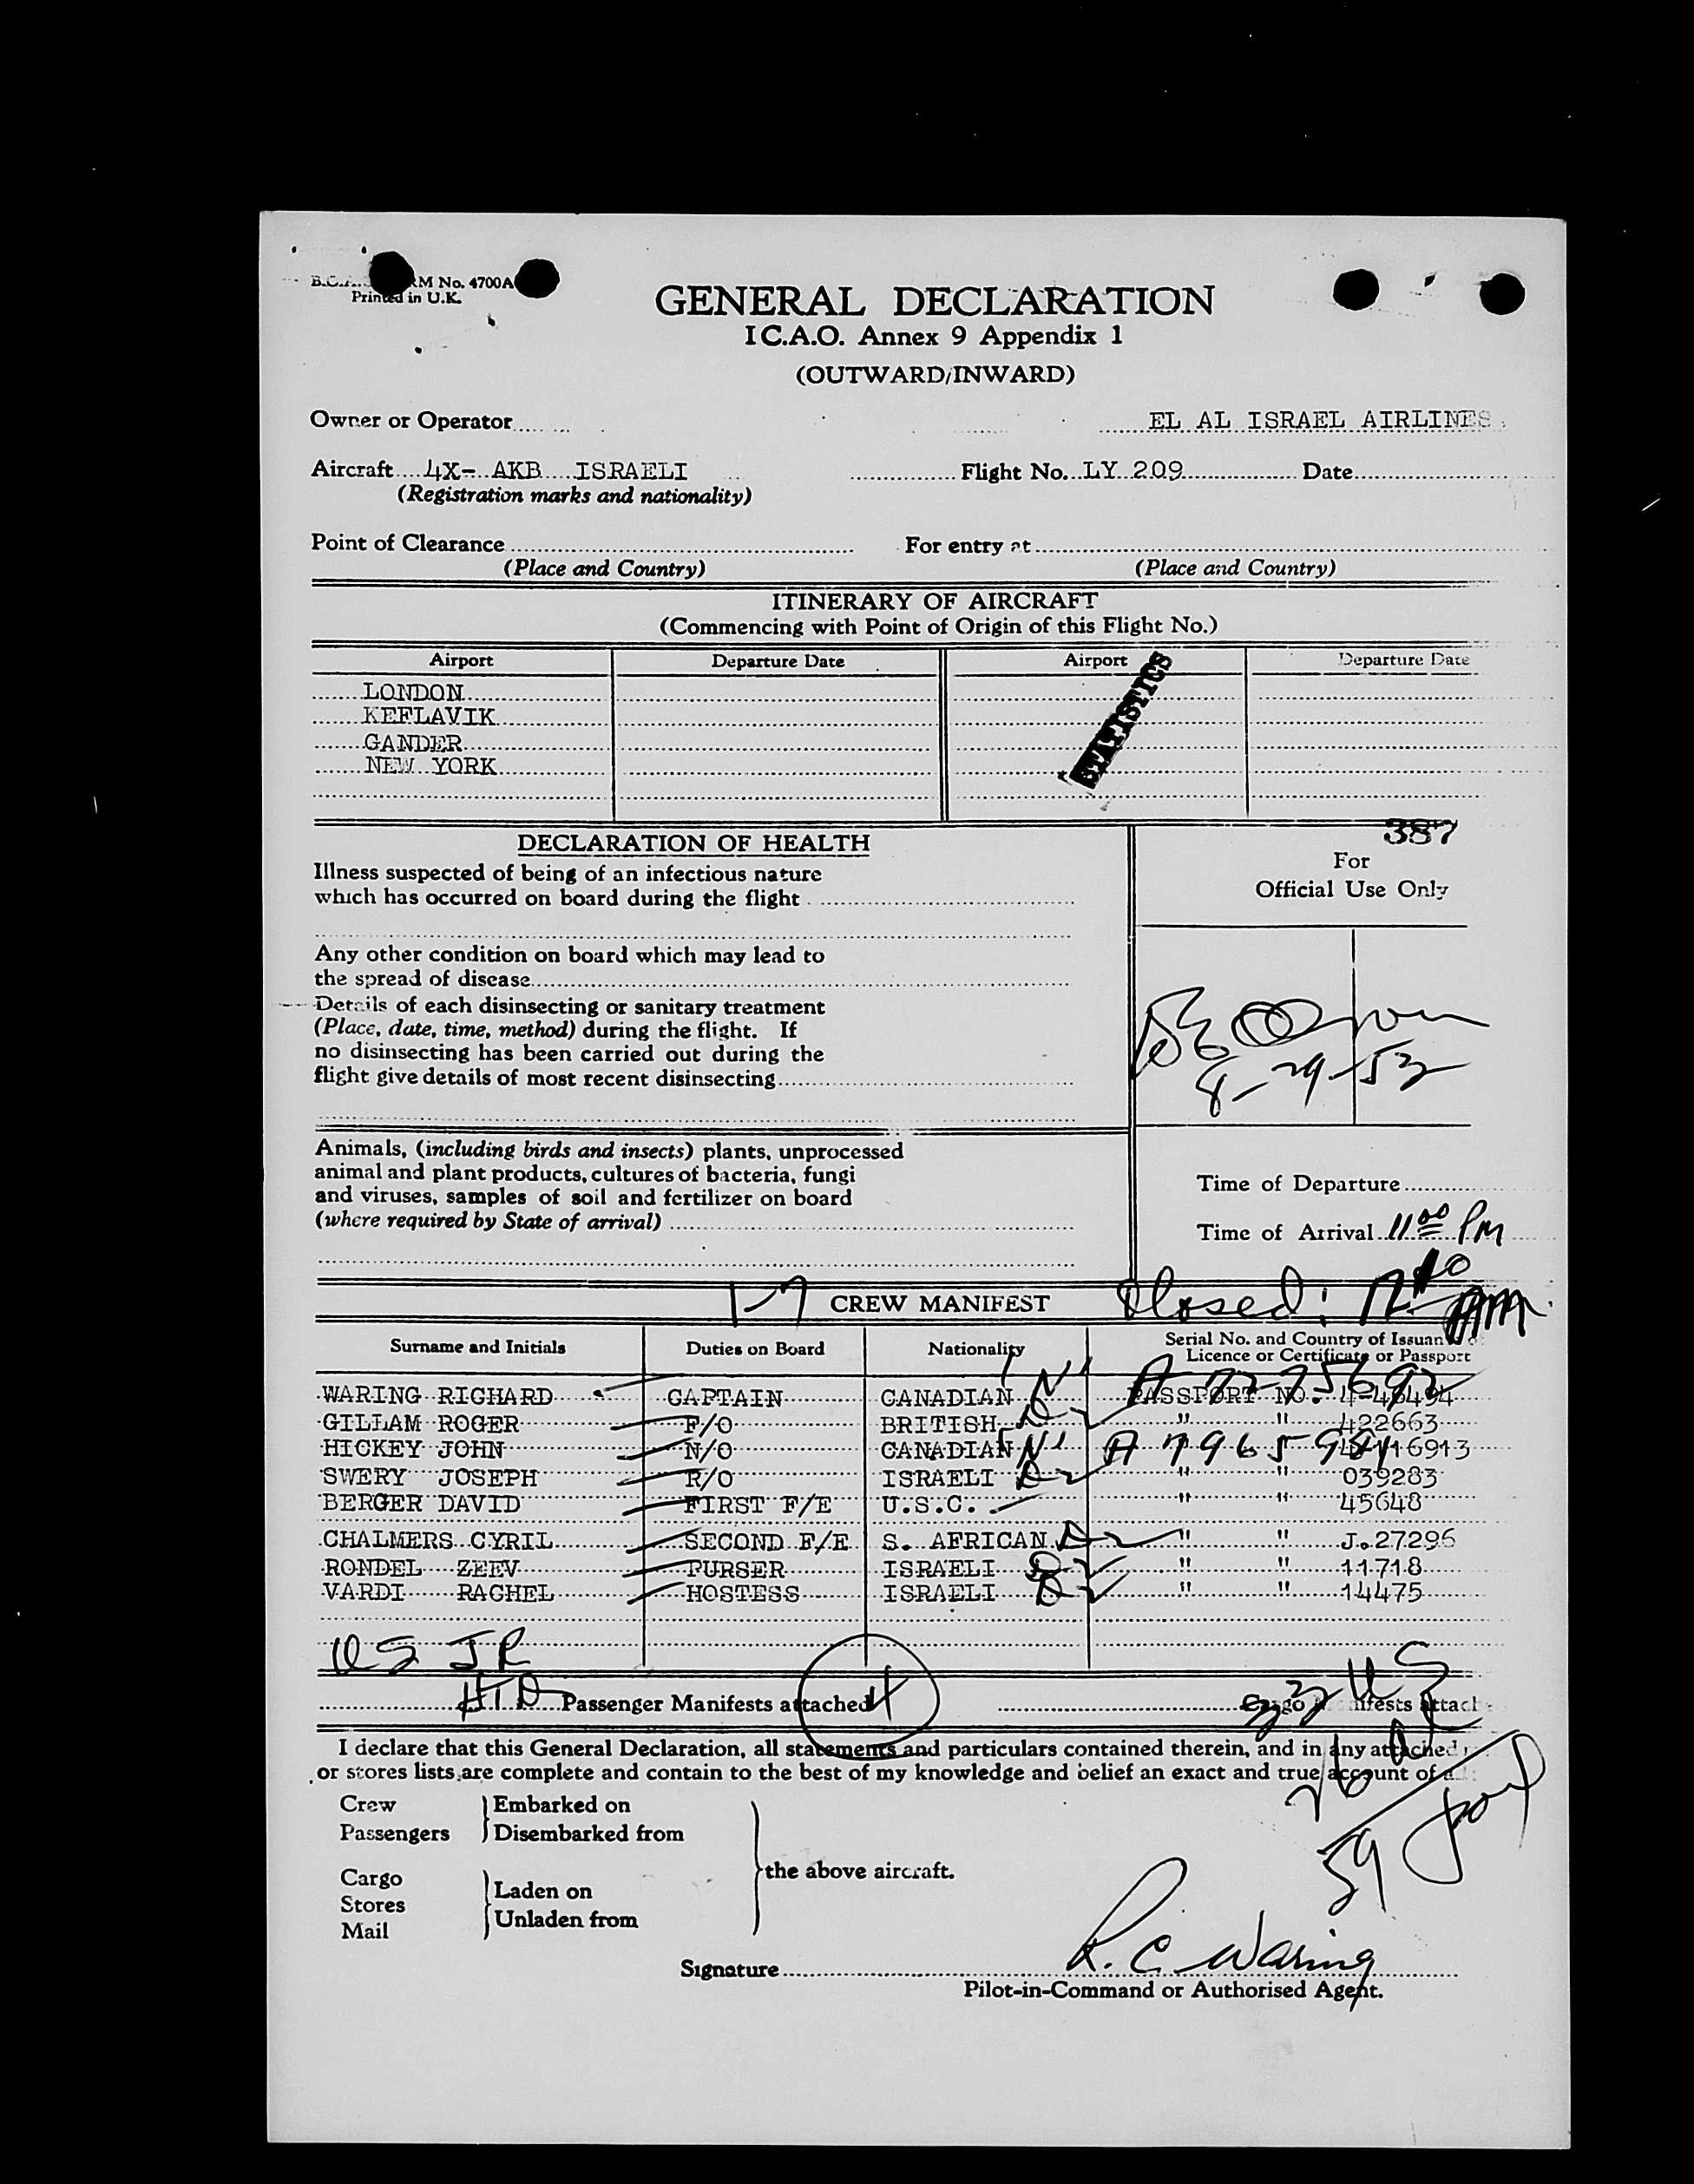 RM No. 4700A
Printed in U.K.
GENERAL DECLARATION
I C.A.O. Annex 9 Appendix 1
(OUTWARD/INWARD)
Owner or Operator EL AL ISRAEL AIRLINES
Aircraft 4X- AKB ISRAELI Flight No. LY 209 Date
(Registration marks and nationality)
Point of Clearance For entry at
(Place and Country) (Place and Country)
ITINERARY OF AIRCRAFT
(Commencing with Point of Origin of this Flight No.)
Airport Departure Date Airport Departure Date
STATISTICS
LONDON
KEFLAVIK
GANDER
NEW YORK
387
DECLARATION OF HEALTH
For
Official Use Only
Illness suspected of being of an infectious nature
which has occurred on board during the flight
Any other condition on board which may lead to
the spread of disease
Details of each disinsecting or sanitary treatment
(Place, date, time, method) during the flight. If
no disinsecting has been carried out during the
flight give details of most recent disinsecting
8-29-53
Animals, (including birds and insects) plants, unprocessed
animal and plant products, cultures of bacteria, fungi
and viruses, samples of soil and fertilizer on board
(where required by State of arrival)
Time of Departure
Time of Arrival 11 00 PM
1-7 CREW MANIFEST Closed: 12
Surname and Initials Duties on Board Nationality Serial No. and Country of Issuan
Licence or Certificate or Passport
WARING RICHARD CAPTAIN CANADIAN PASSPORT NO. 4-46494
GILLAM ROGER F/O BRITISH " " 422663
HICKEY JOHN N/O CANADIAN 16913
SWERY JOSEPH R/O ISRAELI " " 039283
BERGER DAVID FIRST F/E U.S.C. " " 45648
CHALMERS CYRIL SECOND F/E S. AFRICAN " " J.27296
RONDEL ZEEV PURSER ISRAELI " " 11718
VARDI RACHEL HOSTESS ISRAELI " " 14475
US
Passenger Manifests attached 4 Cargo Manifests attach
33 US
26
59
I declare that this General Declaration, all statements and particulars contained therein, and in any attached
or stores lists are complete and contain to the best of my knowledge and belief an exact and true account of
Crew Embarked on
Passengers Disembarked from
the above aircraft.
Cargo Laden on
Stores
Mail Unladen from
Signature R. C. Waring
Pilot-in-Command or Authorised Agent.